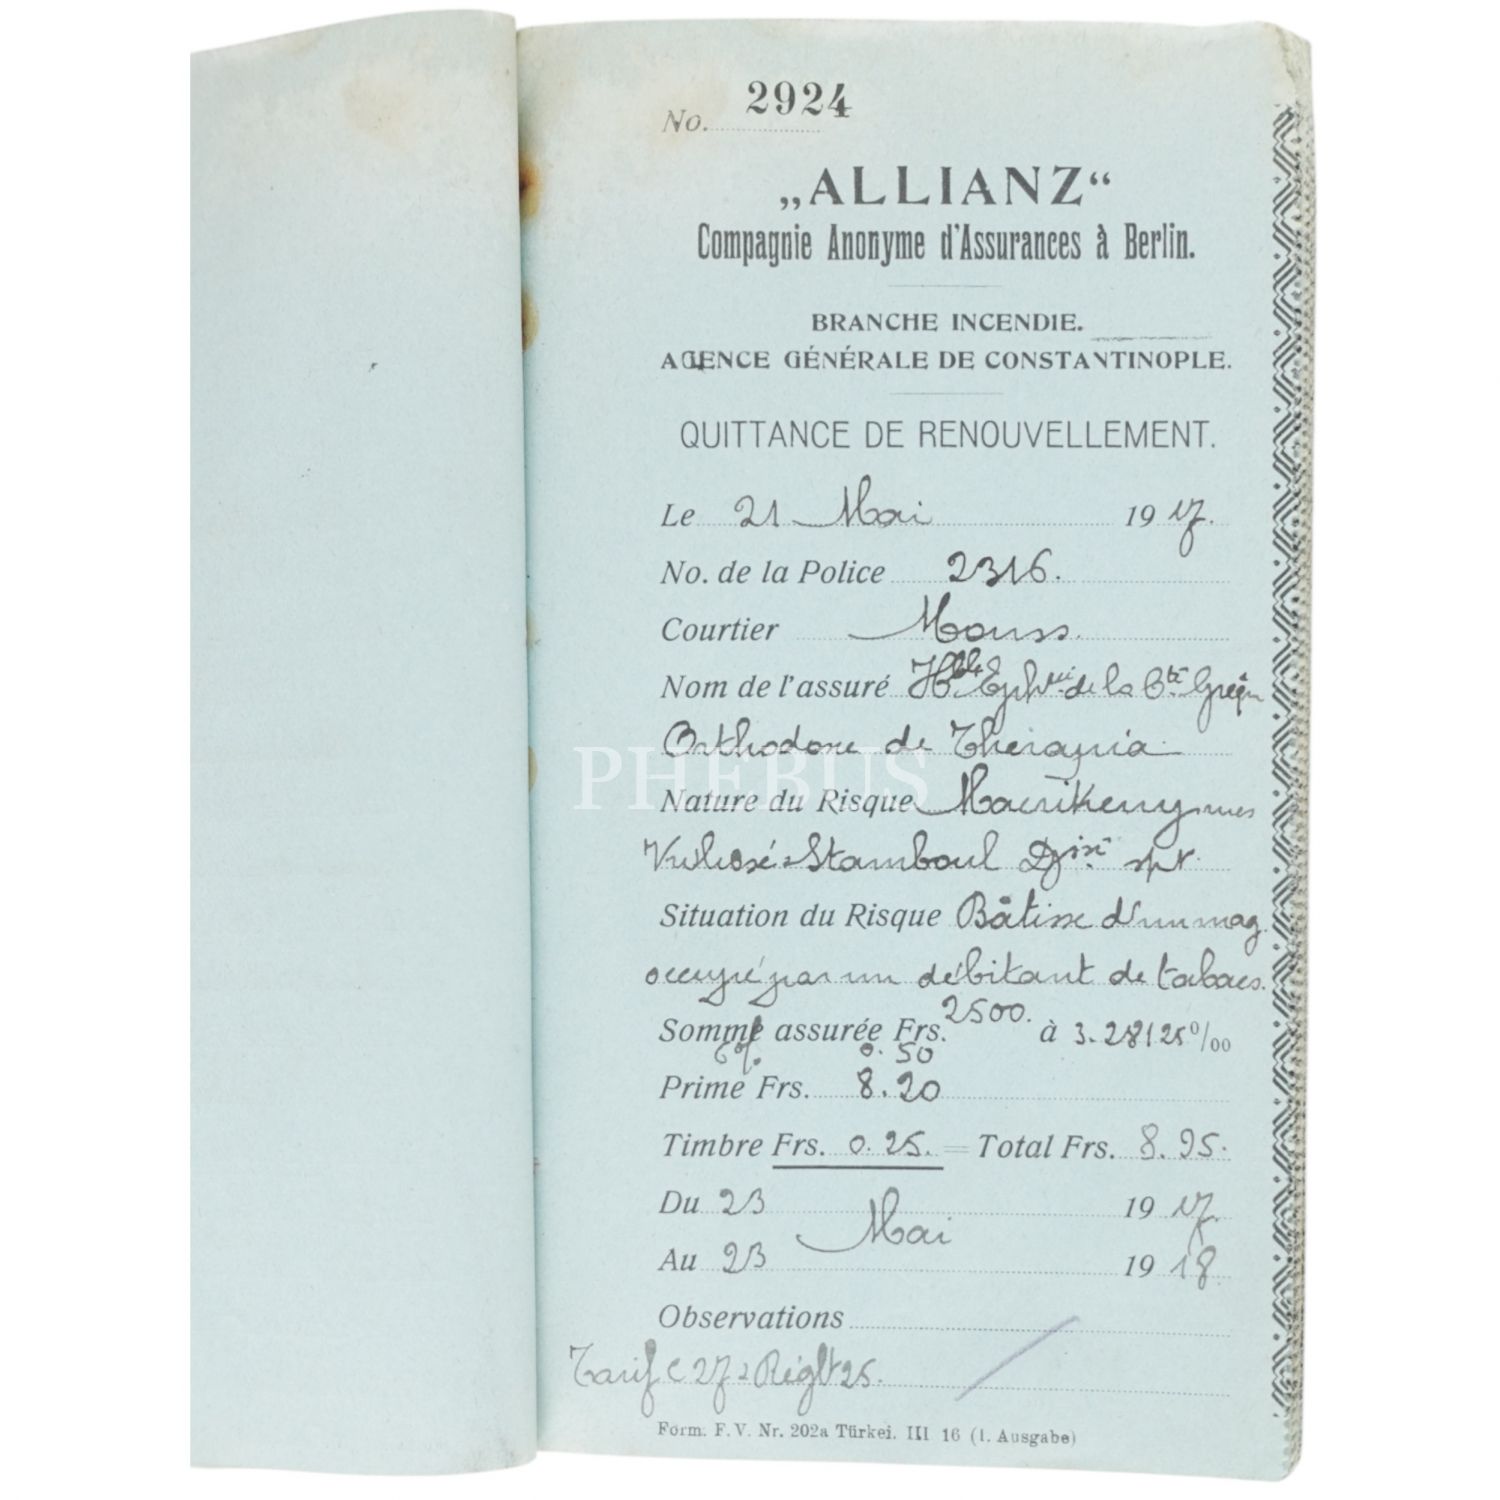 No. 2924
„ALLIANZ“
Compagnie Anonyme d'Assurances à Berlin.
BRANCHE INCENDIE.
AGENCE GÉNÉRALE DE CONSTANTINOPLE.
QUITTANCE DE RENOUVELLEMENT.
Le 21 Mai 1917.
No. de la Police 2316.
Courtier
Nom de l'assuré de la Cté Grecque
Orthodoxe de Thérapia
PHEBUS
Nature du Risque
Stamboul
Situation du Risque Bâtisse d'un mag.
occupé par un débitant de tabacs.
Somme assurée Frs. 2500. à 3.28125 %00
6%. 0.50
Prime Frs. 8.20
Timbre Frs. 0.25. = Total Frs. 8.95.
Du 23 Mai 1917.
Au 23 1918.
Observations
Tarif C 27 Règlt 25.
Form. F. V. Nr. 202a Türkei. III 16 (1. Ausgabe)